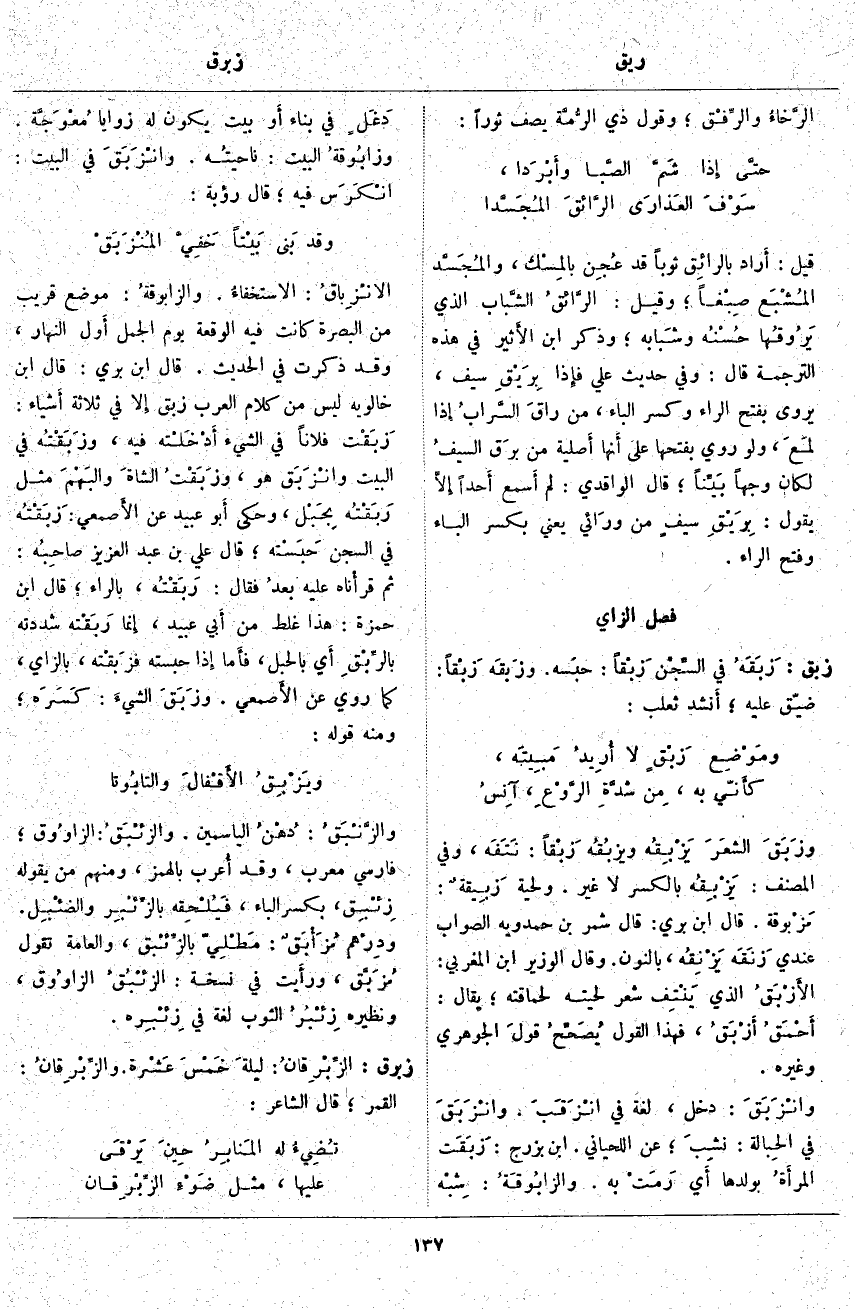 ريق
زبرق
الرَّخاءُ والرِّفْق ؛ وقول ذي الرُّمَّة يصف ثوراً :
حتَّى إذا شَمَّ الصَّبا وأبْرَدا ،
سَوْفَ العَذارَى الرَّائقَ المُجَسَّدا
قيل : أراد بالرائِق ثوباً قد عُجِن بالمِسْك ، والمُجَسَّد
المُشْبَع صِبْغاً ؛ وقيل : الرَّائقُ الشَّباب الذي
يَرُوقُها حُسْنُه وشَبابه ؛ وذكر ابن الأثير في هذه
الترجمة قال : وفي حديث علي فإذا بِرَيْقِ سيف ،
يروى بفتح الراء وكسر الباء ، من راقَ السَّرابُ إذا
لمَعَ ، ولو روي بفتحها على أنها أصلية من برَق السيفُ
لكان وجهاً بَيِّناً ؛ قال الواقدي : لم أسمع أحداً إلاَّ
يقول : بِرَيْقِ سيفٍ من ورائي يعني بكسر الباء
وفتح الراء .
فصل الزاي
زبق : زَبَقَهُ في السِّجْن زَبْقاً : حبَسه. وزبَقه زَبْقاً :
ضيّق عليه ؛ أنشد ثعلب :
ومَوْضِع زَبْقٍ لا أُريدُ مَبيتَه ،
كأنّي به ، مِن شدَّةِ الرَّوْعِ ، آنِسُ
وزبَقَ الشعَرَ يَزْبِقُه ويزبُقُه زَبْقاً : نَتَفَه ، وفي
المصنف : يَزْبِقُه بالكسر لا غير . ولحية زَبِيقةٌ :
مَزْبوقة . قال ابن بري: قال شمر بن حمدويه الصواب
عندي زَنَقَه يَزْنِقُه ، بالنون. وقال الوزير ابن المغربي:
الأَزْبَقُ الذي يَنْتِف شعر لحيته لحماقته ؛ يقال :
أحمَقُ أزْبَقُ ، فهذا القول يُصَحّحُ قولَ الجوهري
وغيره .
وانْزَبَقَ : دخل ، لغة في انْزَقَبَ . وانْزَبَقَ
في الحِبالة : نشِبَ ؛ عن اللحياني . ابن بزرج : زَبَقَت
المرأةُ بولدها أي رَمَتْ به . والزابُوقةُ : شِبْه
دَغَلٍ في بناء أو بيت يكون له زوايا مُعْوَجَّة .
وزابُوقةُ البيت : ناحيتُه . وانْزَبَقَ في البيت :
انْكَرَس فيه ؛ قال رؤبة :
وقد بَنى بَيْتاً خَفِيَّ المُنْزَبَقْ
الانْزِباقُ : الاستخفاءُ . والزابوقةُ : موضع قريب
من البصرة كانت فيه الوقعة يوم الجمل أول النهار ،
وقد ذكرت في الحديث . قال ابن بري : قال ابن
خالويه ليس من كلام العرب زبق إلا في ثلاثة أشياء :
زَبَقْت فلاناً في الشيء أدْخَلْته فيه ، وزبَقْتُه في
البيت وانْزَبَق هو ، وزَبَقْتُ الشاةَ والبَهْمَ مثل
رَبَقْتُه بِحَبْل ، وحكى أبو عبيد عن الأصمعي: زَبَقْتُه
في السجن حَبَسْته ؛ قال علي بن عبد العزيز صاحبُه :
ثم قرأناه عليه بعدُ فقال : رَبَقْتُه ، بالراء ؛ قال ابن
حمزة : هذا غلط من أبي عبيد ، إنما رَبَقْته شددته
بالرِّبْقِ أي بالحبل، فأما إذا حبسته فزَبَقْته ، بالزاي،
كما روي عن الأصمعي . وزبَقَ الشيءَ : كَسَرَه ؛
ومنه قوله :
ويَزْبِقُ الأَقْفالَ والتابُوتا
والزَّنْبَقُ : دُهْنُ الياسمين . والزِّئْبَقُ: الزاوُوق ؛
فارسي معرب ، وقد أُعرب بالهمز ، ومنهم من يقوله
زِئْبِق، بكسر الباء ، فيُلْحِقه بالزِّئْبِر والضئْبِل.
ودِرْهم مُزَأْبَقٌ : مَطْلِيّ بالزِّئْبق ، والعامة تقول
مُزَبَّق ، ورأيت في نسخة : الزِّئْبُقُ الزاوُوق ،
ونظيره زِئْبُرُ الثوب لغة في زِئْبِره .
زبرق : الزِّبْرِقانُ: ليلةَ خَمْسَ عَشْرة.والزِّبْرِقانُ :
القمر ؛ قال الشاعر :
تُضِيءُ له المَنابِرُ حِينَ يَرْقَى
عليها ، مثل ضَوْءِ الزِّبْرِقان
١٣٧